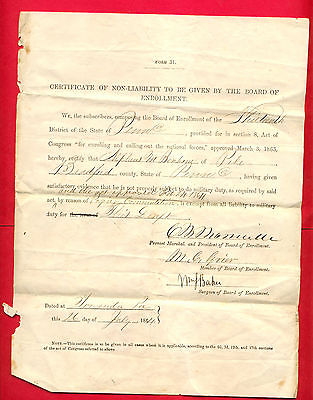 FORM 31.
CERTIFICATE OF NON-LIABILITY TO BE GIVEN BY THE BOARD OF
ENROLLMENT.
We, the subscribers, composing the Board of Enrollment of the Thirteenth
District of the State of Penna, provided for in section 8, Act of
Congress "for enrolling and calling out the national forces," approved March 3, 1863,
hereby certify that of Pike
Bradford county, State of Penna, having given
satisfactory evidence that he is not properly subject to do military duty, as required by said
act, by reason of Paying Commutation is exempt from all liability to military
duty for the term of This Draft
Provost Marshal, and President of Board of Enrollment.
Member of Board of Enrollment.
Wm Baker
Surgeon of Board of Enrollment.
Dated at
this 16 day of July 1864
NOTE.—This certificate is to be given in all cases where it is applicable, according to the 2d, 3d, 13th, and 17th sections
of the act of Congress referred to above.